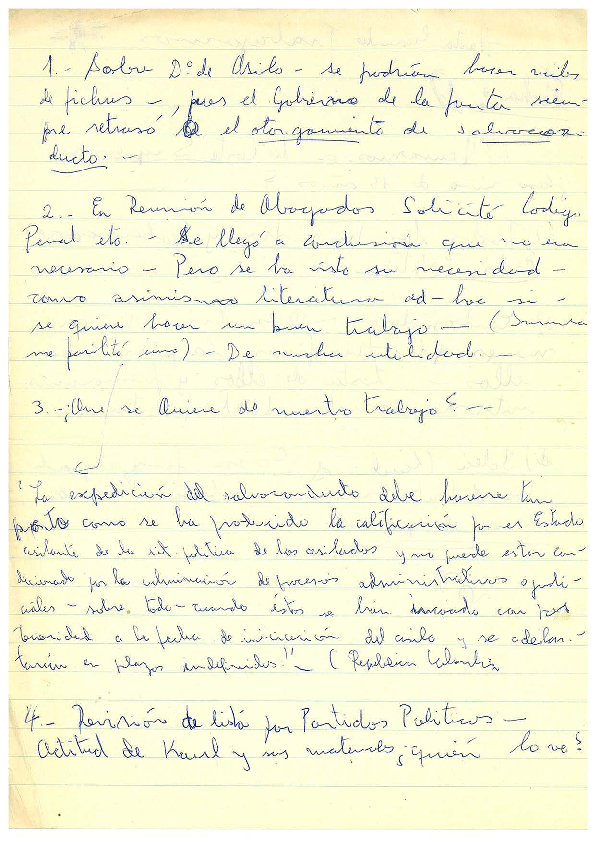 1.- Sobre D.º de Asilo - se podrían hacer miles
de fichas -, pues el Gobierno de la Junta siem-
pre retrasó el otorgamiento de salvocon-
ducto. -
2.- En Reunión de Abogados Solicité Codig.
Penal etc. - Se llegó a conclusión que no era
necesario - Pero se ha visto su necesidad -
como asimismo literatura ad-hoc si -
se quiere hacer un buen trabajo - (
me facilitó uno) - De mucha utilidad. -
3.- ¿Que se Quiere de nuestro trabajo? --
"La expedición del salvoconducto debe hacerse tan
pronto como se ha producido la calificación por el Estado
asilante de la sit. política de los asilados y no puede estar con-
dicionado por la culminación de procesos administrativos o judi-
ciales - sobre todo - cuando éstos se han incoado con pos-
terioridad a la fecha de iniciación del asilo y se adelan-
tarían en plazos indefinidos!" - (República Colombia
4.- Revisión de lista por Partidos Políticos -
Actitud de y sus materiales ¿quién lo ve?